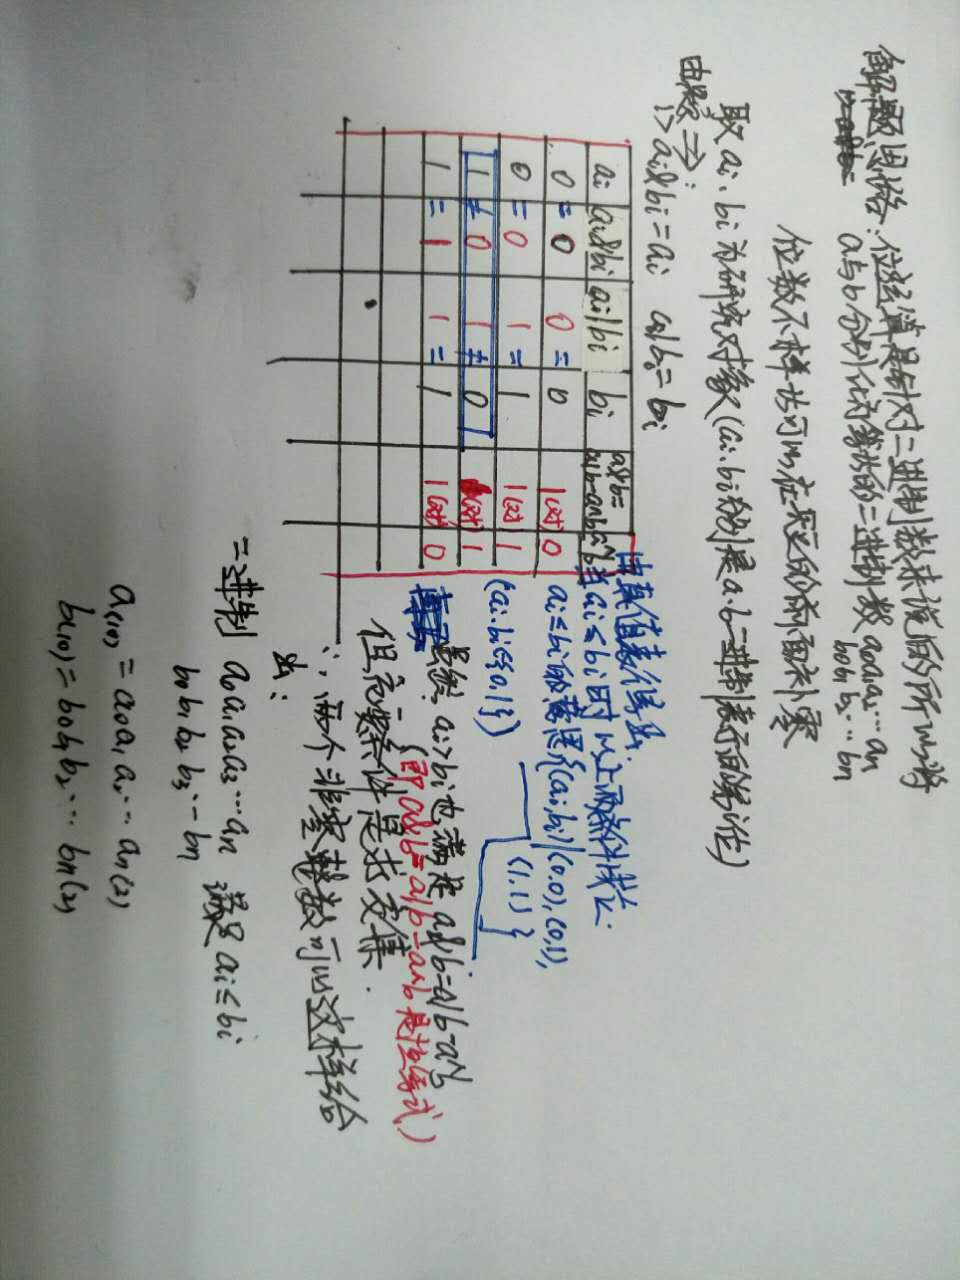 解题思路：位运算是针对二进制数来说的所以将
a与b分别化为等长的二进制数 a0a1a2…an
b0b1b2…bn
位数不一样长可以在短的前面补零
取 ai、bi 为研究对象(ai、bi分别是a、b二进制表示的第i位)
由题意⇒:
1> ai&bi=ai ai|bi=bi
ai ai&bi ai|bi bi a&b=a|b-a^b
0 = 0 0 = 0 1(对) 0
0 = 0 1 = 1 1(对) 1
1 ≠ 0 1 ≠ 0 1(对) 1
1 = 1 1 = 1 1(对) 0
由真值表得出:
当 ai≤bi 时以上两条件成立.
ai≤bi 的范围 {(ai,bi)|(0,0),(0,1),
(1,1)}
(ai、bi∈{0,1})
虽然: ai>bi 也满足 a&b=a|b-a^b
(即 a&b=a|b-a^b 是恒等式)
但完整条件是求交集.
∴,每个非零整数可以这样给
出:
二进制 a0a1a2a3…an 满足 ai≤bi
b0b1b2b3…bn
a(10) = a0a1a2…an(2)
b(10) = b0b1b2…bn(2)